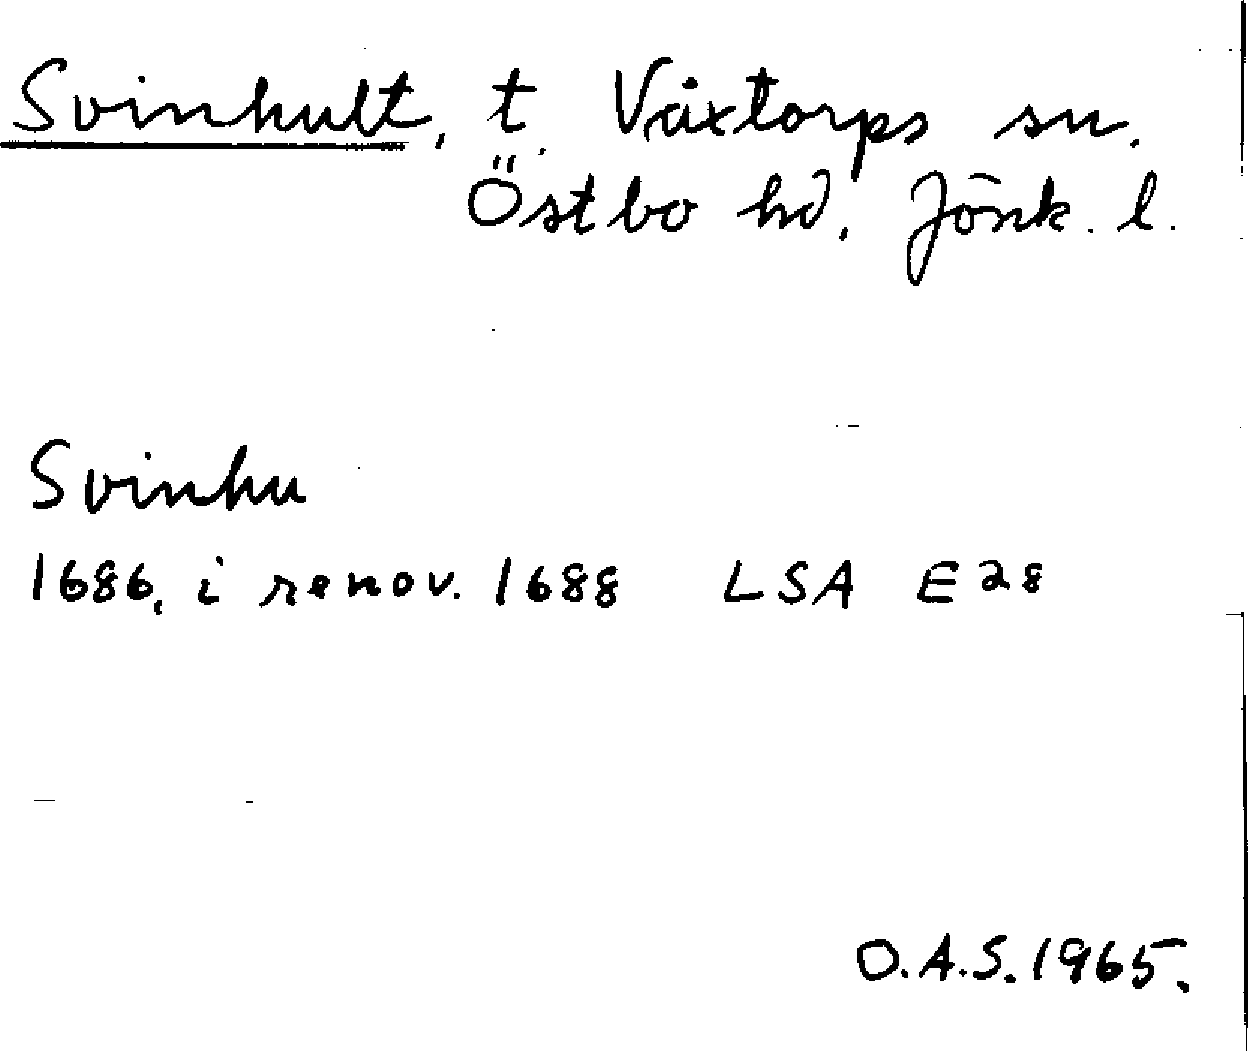 Svinhult, t. Våxtorps sn.
Östbo hd, Jönk. l.
Svinhu
1686, i renov. 1688 LSA E28
O.A.S. 1965.